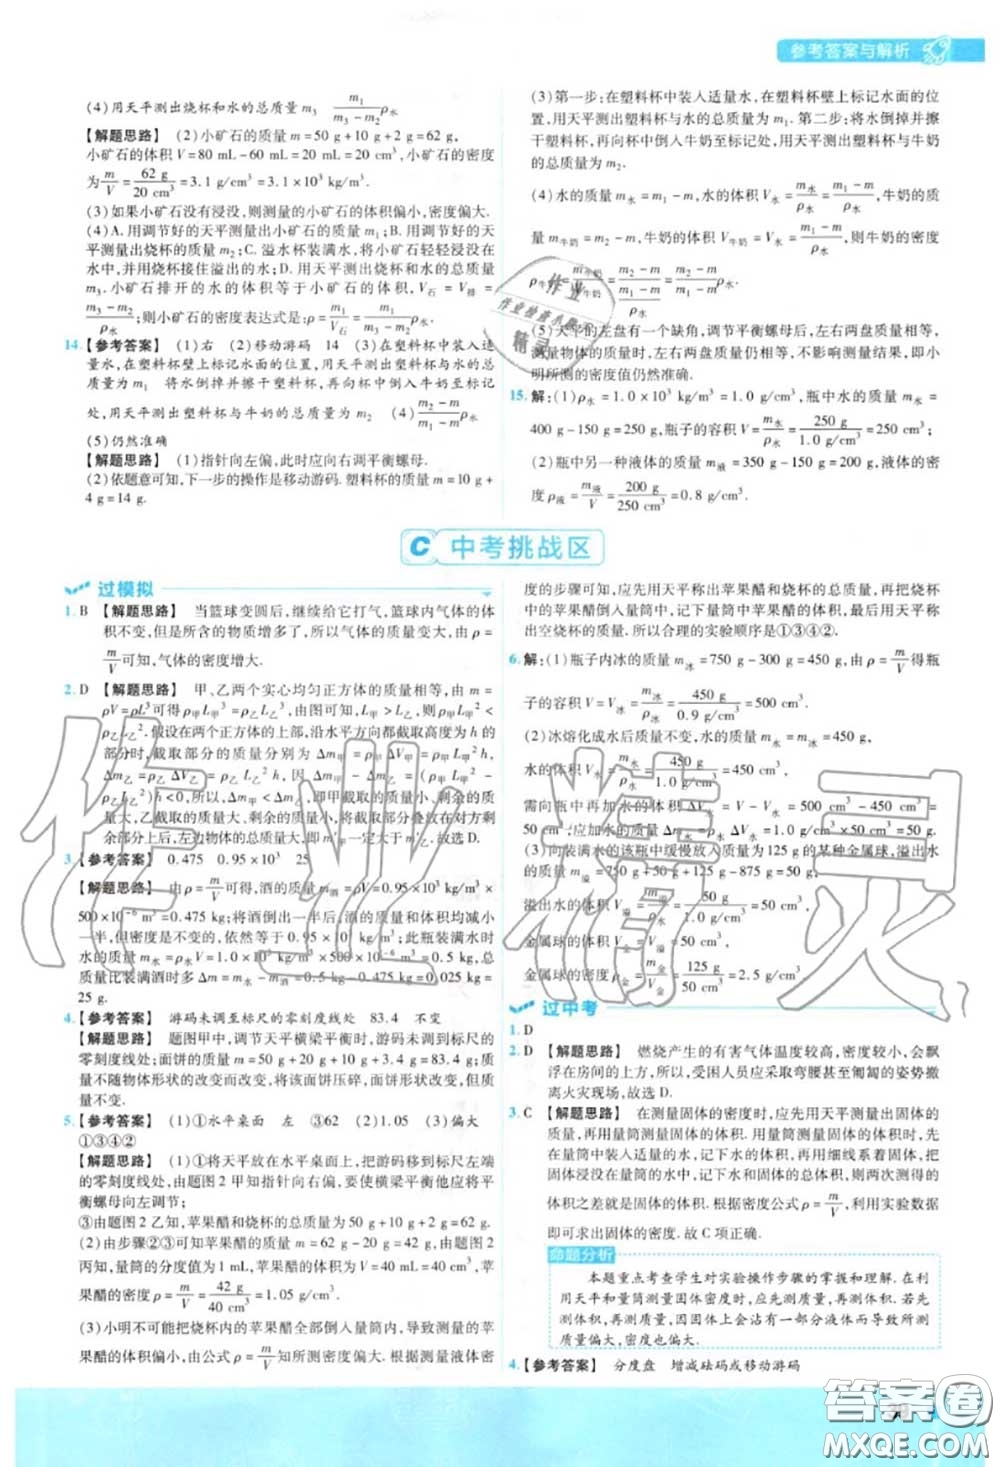 参考答案与解析
(4)用天平测出烧杯和水的总质量 m₃ m₁/(m₃-m₂) ρ水
【解题思路】 (2)小矿石的质量 m=50 g+10 g+2 g=62 g,
小矿石的体积 V=80 mL-60 mL=20 mL=20 cm³,小矿石的密度
为 m/V = 62 g/20 cm³ =3.1 g/cm³=3.1×10³ kg/m³.
(3)如果小矿石没有浸没,则测量的小矿石的体积偏小,密度偏大.
(4)A. 用调节好的天平测量出小矿石的质量 m₁;B. 用调节好的天
平测量出烧杯的质量 m₂;C. 溢水杯装满水,将小矿石轻轻浸没在
水中,并用烧杯接住溢出的水;D. 用天平测出烧杯和水的总质量
m₃.小矿石排开的水的体积等于小矿石的体积, V石=V排=
(m₃-m₂)/ρ水;则小矿石的密度表达式是:ρ= m₁/(m₃-m₂) ρ水.
14.【参考答案】 (1)右 (2)移动游码 14 (3)在塑料杯中装入适
量水,在塑料杯壁上标记水面的位置,用天平测出塑料杯与水的总
质量为 m₁ 将水倒掉并擦干塑料杯,再向杯中倒牛奶至标记
处,用天平测出塑料杯与牛奶的总质量为 m₂ (4) (m₂-m)/(m₁-m) ρ水
(5)仍然准确
【解题思路】 (1)指针向左偏,此时应向右调平衡螺母.
(2)依题意可知,下一步的操作是移动游码.塑料杯的质量 m=10 g+
4 g=14 g.
(3)第一步:在塑料杯中装入适量水,在塑料杯壁上标记水面的位
置,用天平测出塑料杯与水的总质量为 m₁. 第二步:将水倒掉并擦
干塑料杯,再向杯中倒入牛奶至标记处,用天平测出塑料杯与牛奶
的总质量为 m₂.
(4)水的质量 m水=m₁-m,水的体积 V水= m水/ρ水 = (m₁-m)/ρ水,牛奶的质
量 m牛奶=m₂-m,牛奶的体积 V牛奶=V水= (m₁-m)/ρ水,则牛奶的密度
ρ牛奶= m牛奶/V牛奶 = (m₂-m)/((m₁-m)/ρ水) = (m₂-m)/(m₁-m) ρ水.
(5)天平的左盘有一个缺角,调节平衡螺母后,左右两盘质量相等,
测量物体的质量时,左、右两盘质量仍相等,不影响测量结果,即小
明所测的密度值仍然准确.
15.解:(1)ρ水=1.0×10³ kg/m³=1.0 g/cm³,瓶中水的质量 m水=
400 g-150 g=250 g,瓶子的容积 V= m水/ρ水 = 250 g/1.0 g/cm³ =250 cm³;
(2)瓶中另一种液体的质量 m液=350 g-150 g=200 g,液体的密
度 ρ液= m液/V = 200 g/250 cm³ =0.8 g/cm³.
C 中考挑战区
过模拟
1.B 【解题思路】 当篮球变圆后,继续给它打气,篮球内气体的体
积不变,但是所含的物质增多了,所以气体的质量变大,由 ρ=
m/V 可知,气体的密度增大.
2.D 【解题思路】 甲、乙两个实心均匀正方体的质量相等,由 m=
ρV=ρL³可得 ρ甲L甲³=ρ乙L乙³,由图可知,L甲>L乙,则 ρ甲L甲²<
ρ乙L乙².假设在两个正方体的上部,沿水平方向都截取高度为 h 的
部分时,截取部分的质量分别为 Δm甲=ρ甲ΔV甲=ρ甲L甲²h,
Δm乙=ρ乙ΔV乙=ρ乙L乙²h,因为 Δm甲-Δm乙=(ρ甲L甲²-
ρ乙L乙²)h<0,所以,Δm甲<Δm乙,即甲截取的质量小、剩余的质
量大,乙截取的质量大、剩余的质量小,将截取部分叠放在对方剩
余部分上后,左边物体的总质量大,即 m′甲一定大于 m′乙.故选 D.
3.【参考答案】 0.475 0.95×10³ 25
【解题思路】 由 ρ= m/V 可得,酒的质量 m酒=ρ酒V=0.95×10³ kg/m³×
500×10⁻⁶ m³=0.475 kg;将酒倒出一半后,酒的质量和体积均减小
一半,但密度是不变的,依然等于 0.95×10³ kg/m³;此瓶装满水时
水的质量 m水=ρ水V=1.0×10³ kg/m³×500×10⁻⁶ m³=0.5 kg,总
质量比装满酒时多 Δm=m水-m酒=0.5 kg-0.475 kg=0.025 kg=
25 g.
4.【参考答案】 游码未调至标尺的零刻度线处 83.4 不变
【解题思路】 题图甲中,调节天平横梁平衡时,游码未调到标尺的
零刻度线处;面饼的质量 m=50 g+20 g+10 g+3.4 g=83.4 g;质
量不随物体形状的改变而改变,将该面饼压碎,面饼形状改变,质
量不变.
5.【参考答案】 (1)①水平桌面 左 ③62 (2)1.05 (3)偏大
①③④②
【解题思路】 (1)①将天平放在水平桌面上,把游码移到标尺左端
的零刻度线处,由题图 2 甲知指针向右偏,要使横梁平衡他应将平
衡螺母向左调节;
③由题图 2 乙知,苹果醋和烧杯的总质量为50 g+10 g+2 g=62 g.
(2)由步骤②③可知,量筒中苹果醋的质量 m=42 g,由题图 2
丙知,量筒的分度值为 1 mL,苹果醋的体积 V=40 mL=40 cm³,苹
果醋的密度 ρ= m/V = 42 g/40 cm³ =1.05 g/cm³.
(3)小明不可能把烧杯内的苹果醋全部倒入量筒内,导致测量的苹
果醋的体积偏小,由公式 ρ= m/V 知密度偏大.根据测量液体密
度的步骤可知,应先用天平称出苹果醋和烧杯的总质量,再把烧杯
中的苹果醋倒入量筒中,记下量筒中苹果醋的体积,最后用天平称
出空烧杯的质量.所以合理的实验顺序是①③④②.
6.解:(1)瓶子内冰的质量 m冰=750 g-300 g=450 g,由 ρ= m/V 得瓶
子的容积 V=V冰= m冰/ρ冰 = 450 g/0.9 g/cm³ =500 cm³;
(2)冰熔化成水后质量不变,m水=m冰=450 g,
水的体积 V水= m水/ρ水 = 450 g/1.0 g/cm³ =450 cm³,
需向瓶中再加水的体积 ΔV=V-V水=500 cm³-450 cm³=
50 cm³;应加水的质量 Δm=ρ水ΔV=1.0 g/cm³×50 cm³=50 g.
(3)向装满水的该瓶中缓慢放入质量为125 g的某种金属球,溢出水
的质量 m溢=750 g+50 g+125 g-875 g=50 g,
溢出水的体积 V溢= m溢/ρ水 = 50 g/1.0 g/cm³ =50 cm³,
金属球的体积 V金=V溢=50 cm³,
金属球的密度 ρ金= m金/V金 = 125 g/50 cm³ =2.5 g/cm³.
过中考
1.D
2.D 【解题思路】 燃烧产生的有害气体温度较高,密度较小,会飘
浮在房间的上方,所以,受困人员应采用弯腰甚至匍匐的姿势撤
离火灾现场,故选 D.
3.C 【解题思路】 在测量固体的密度时,应先用天平测量出固体的
质量,再用量筒测量固体的体积.用量筒测量固体的体积时,先
在量筒中装入适量水,记下水的体积,再用细线系着固体,把
固体浸没在量筒的水中,记下水和固体的总体积,则两次测得的
体积之差就是固体的体积.根据密度公式 ρ= m/V,利用实验数据
即可求出固体的密度.故 C 项正确.
命题分析
本题重点考查学生对实验操作步骤的掌握和理解.在利
用天平和量筒测量固体密度时,应先测质量,再测体积.若先
测体积,再测质量,会因固体上会沾有一部分液体而导致所测
质量偏大,密度也偏大.
4.【参考答案】 分度盘 增减砝码或移动游码
作业
作业检查小助
精灵
作业精灵
答案圈
MXQE.COM